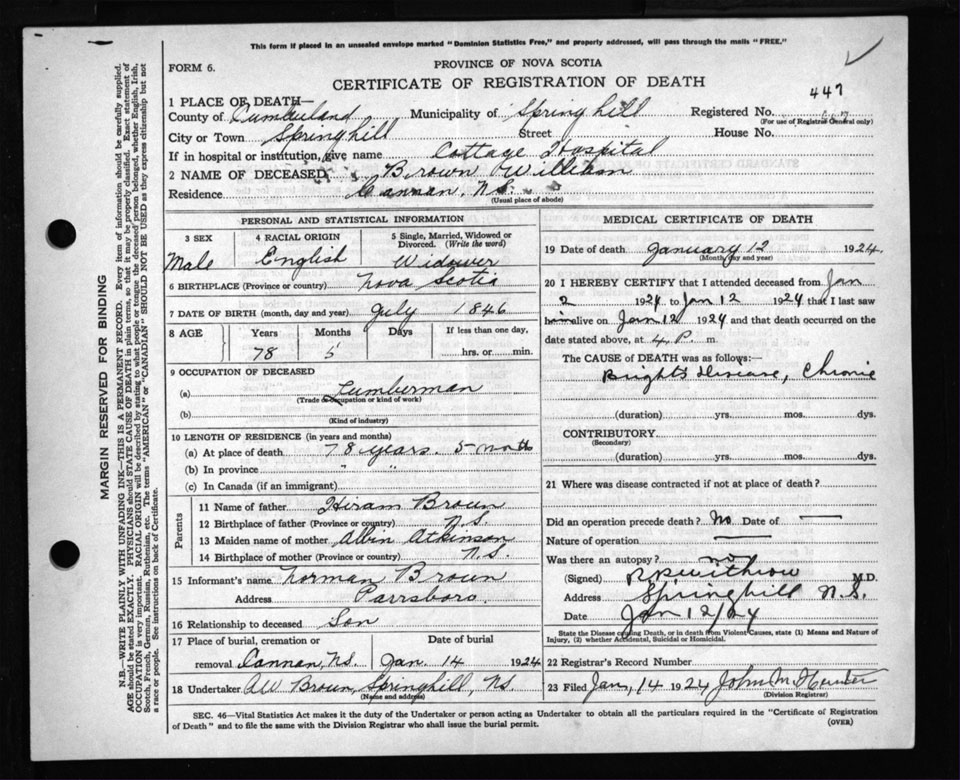 This form if placed in an unsealed envelope marked "Dominion Statistics Free," and properly addressed, will pass through the mails "FREE."
FORM 6.
PROVINCE OF NOVA SCOTIA
CERTIFICATE OF REGISTRATION OF DEATH
447
1 PLACE OF DEATH—
County of Cumberland Municipality of Springhill Registered No.
(For use of Registrar General only)
City or Town Springhill Street House No.
If in hospital or institution, give name Cottage Hospital
2 NAME OF DECEASED Brown William
Residence Cannan, N.S.
(Usual place of abode)
PERSONAL AND STATISTICAL INFORMATION
3 SEX 4 RACIAL ORIGIN 5 Single, Married, Widowed or Divorced. (Write the word)
Male English Widower
6 BIRTHPLACE (Province or country) Nova Scotia
7 DATE OF BIRTH (month, day and year) July 1846
8 AGE Years Months Days If less than one day,
78 5 hrs. or min.
9 OCCUPATION OF DECEASED
(a) Lumberman
(Trade or occupation or kind of work)
(b)
(Kind of industry)
10 LENGTH OF RESIDENCE (in years and months)
(a) At place of death 78 years. 5 moth
(b) In province " "
(c) In Canada (if an immigrant)
Parents
11 Name of father Hiram Brown
12 Birthplace of father (Province or country) N.S.
13 Maiden name of mother Albin Atkinson
14 Birthplace of mother (Province or country) N.S.
15 Informant's name Norman Brown
Address Parrsboro.
16 Relationship to deceased Son
17 Place of burial, cremation or Date of burial
removal Cannan, N.S. Jan. 14 1924
18 Undertaker AW Brown, Springhill, N.S.
(Name and address)
MEDICAL CERTIFICATE OF DEATH
19 Date of death January 12 1924.
(Month, day and year)
20 I HEREBY CERTIFY that I attended deceased from Jan
2 1924 to Jan 12 1924 that I last saw
him alive on Jan 12 1924 and that death occurred on
date stated above, at 4 P. m.
The CAUSE of DEATH was as follows:—
Brights disease, Chronic
(duration) yrs. mos. dys.
CONTRIBUTORY
(Secondary)
(duration) yrs. mos. dys.
21 Where was disease contracted if not at place of death?
Did an operation precede death? No Date of —
Nature of operation —
Was there an autopsy? no
(Signed) M.D.
Address Springhill N.S.
Date Jan 12/24
State the Disease causing Death, or in death from Violent Causes, state (1) Means and Nature of
Injury, (2) whether Accidental, Suicidal or Homicidal.
22 Registrar's Record Number
23 Filed Jan, 14 1924 John M.
(Division Registrar)
SEC. 46—Vital Statistics Act makes it the duty of the Undertaker or person acting as Undertaker to obtain all the particulars required in the "Certificate of Registration
of Death" and to file the same with the Division Registrar who shall issue the burial permit.
(OVER)
MARGIN RESERVED FOR BINDING
N.B.—WRITE PLAINLY WITH UNFADING INK—THIS IS A PERMANENT RECORD. Every item of information should be carefully supplied.
AGE should be stated EXACTLY. PHYSICIANS should STATE CAUSE OF DEATH in plain terms, so that it may be properly classified. Exact statement of
OCCUPATION is very important. RACIAL ORIGIN will be described by stating to what people or tongue the deceased person belonged, whether English, Irish,
Scotch, French, German, Russian, Ruthenian, etc. The terms "AMERICAN" or "CANADIAN" SHOULD NOT BE USED as they express citizenship but not
a race or people. See instructions on back of Certificate.